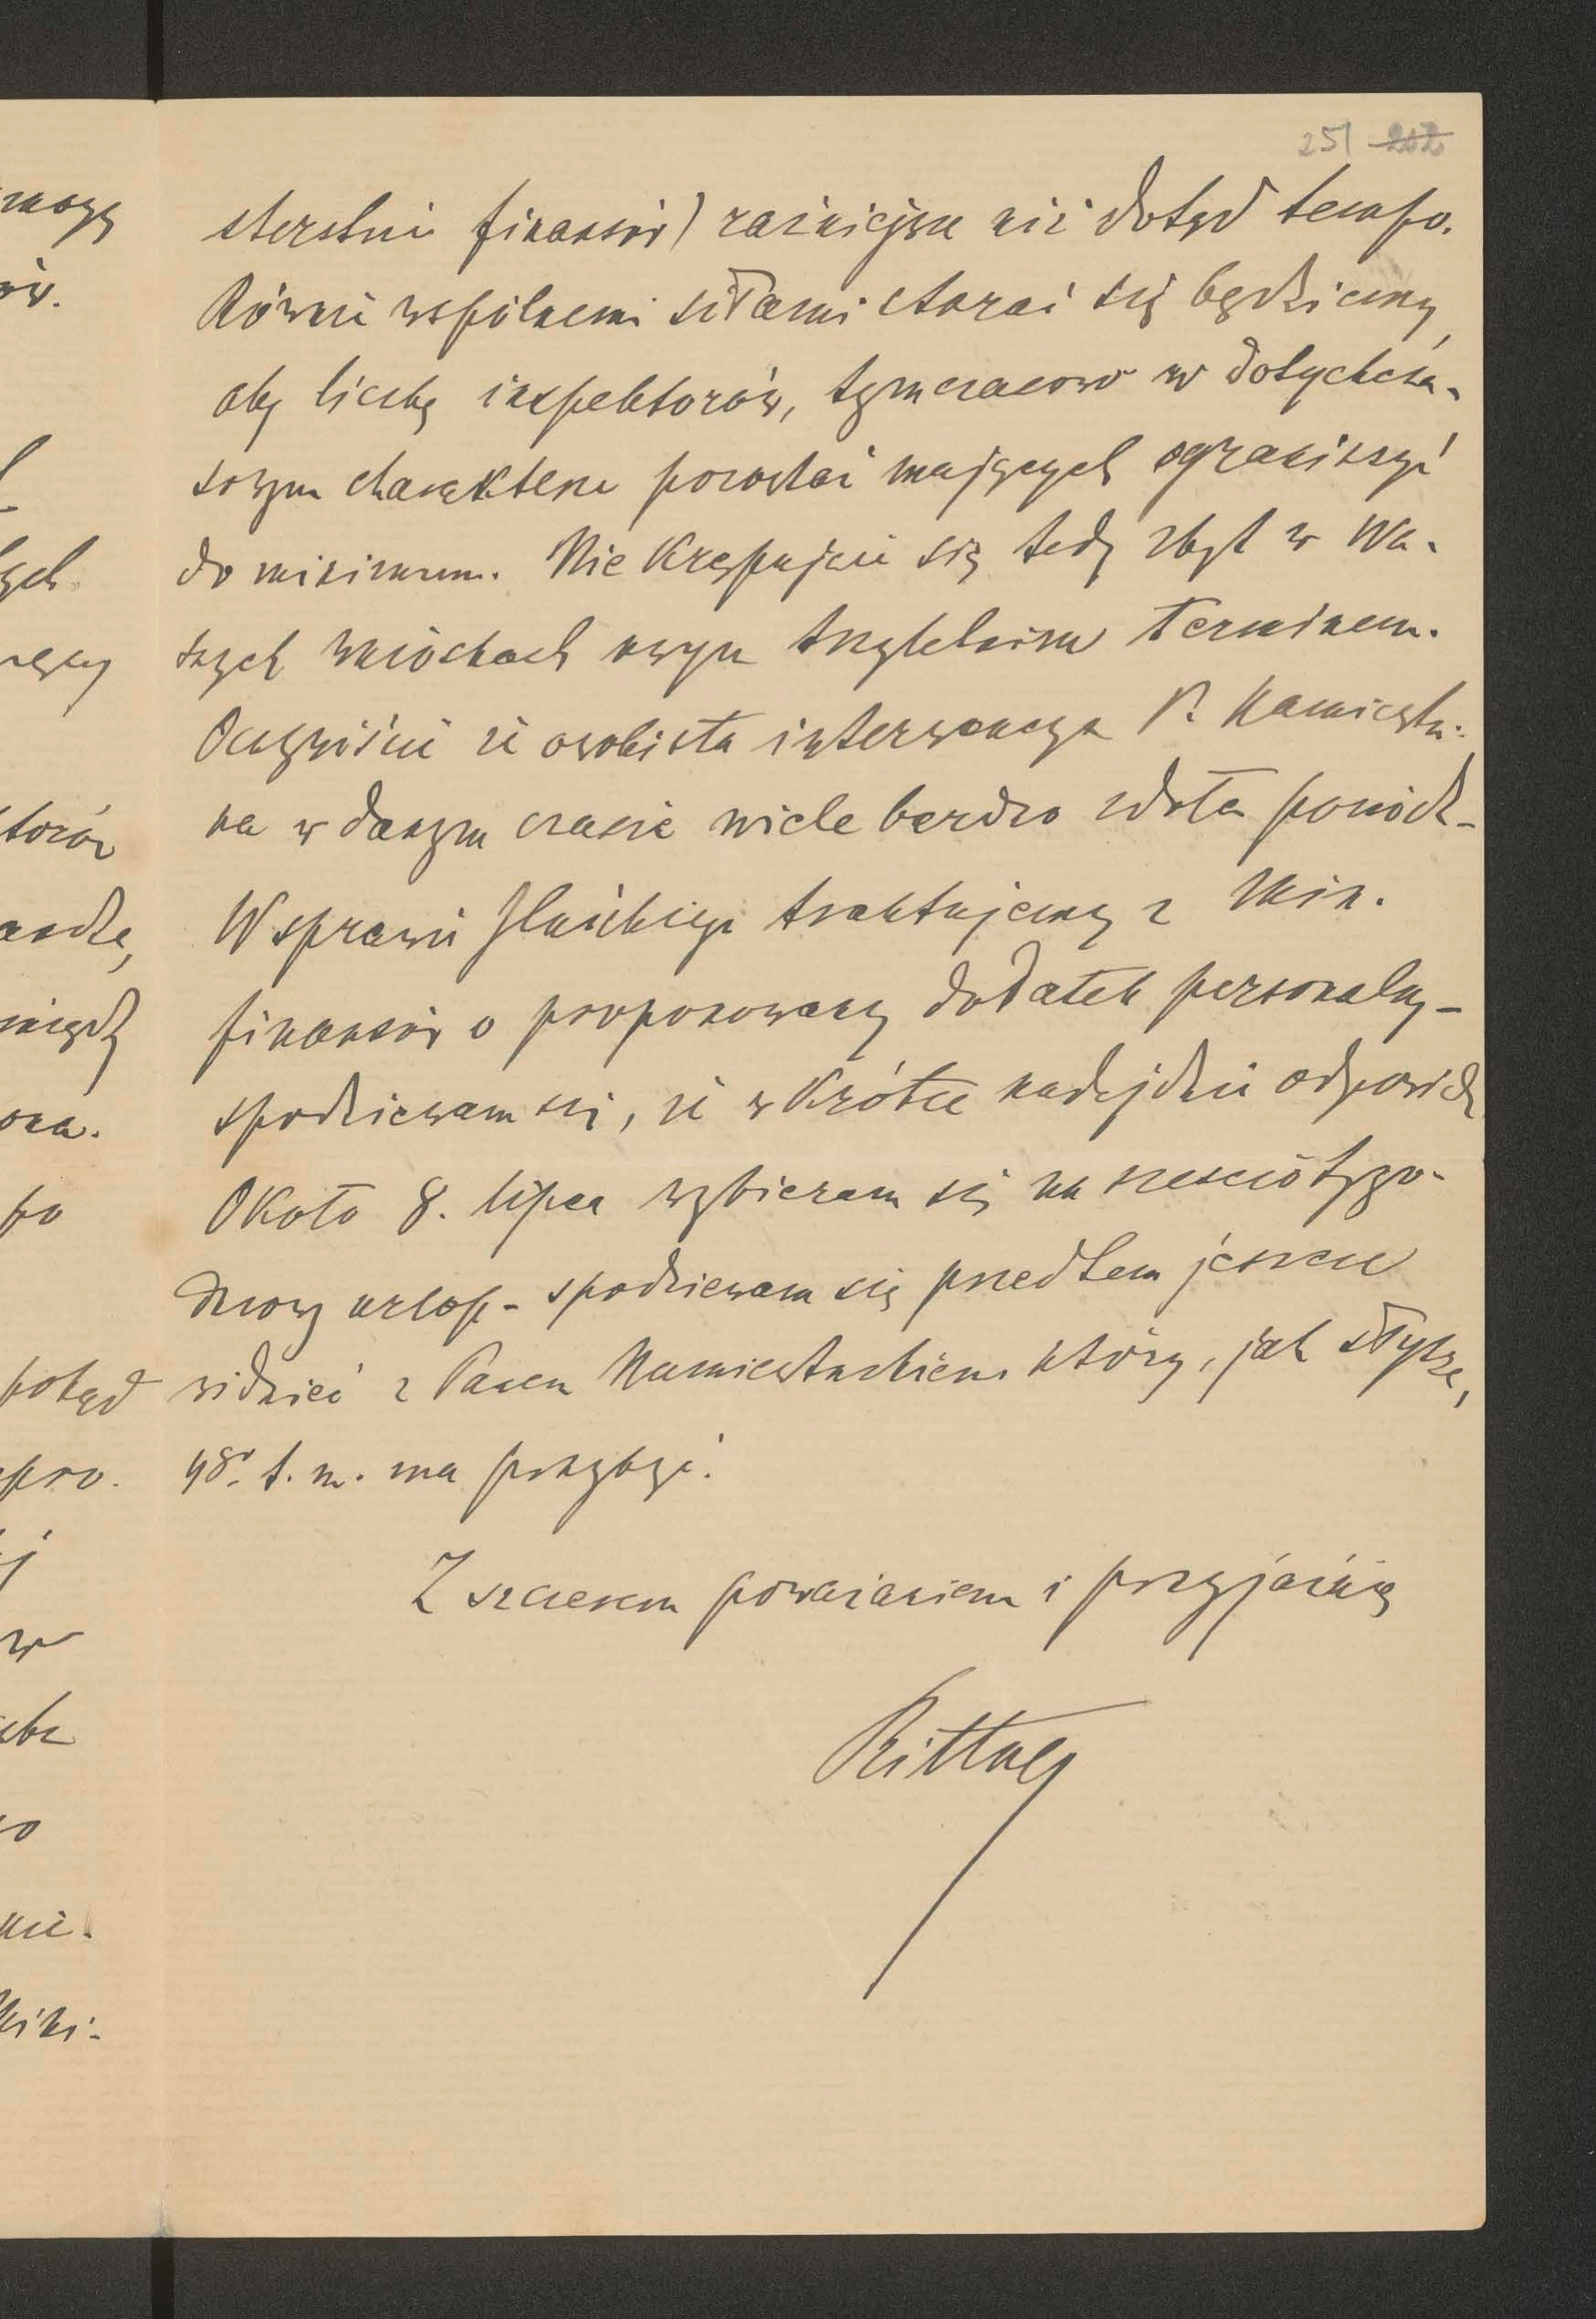 251 212
sterstwie finansów) raźniejsze niż dotąd tempo.
Również wspólnemi siłami starać się będziemy,
aby liczbę inspektorów, tymczasowo w dotychcza-
sowym charakterze pozostać mających ograniczyć
do minimum. Nie krępujcie się tedy zbyt w Wa-
szych wnioskach owym trzyletnim terminem.
Oczywiście że osobista interwencya P. Namiestni-
ka w danym czasie wiele bardzo zdoła pomódz -
W sprawie traktujemy z Min.
finansów o proponowany dodatek personalny -
spodziewam się, że wkrótce nadejdzie odpowiedź
Około 8. lipca wybieram się na sześciotygo-
dniowy urlop - spodziewam się przedtem jeszcze
widzieć z Panem Namiestnikiem który, jak słyszę,
t. m. ma przybyć.
Z szczerem poważaniem i przyjaźnią
Rittner
mogę
ów.
ych
torów
ona.
po
potąd
pro.